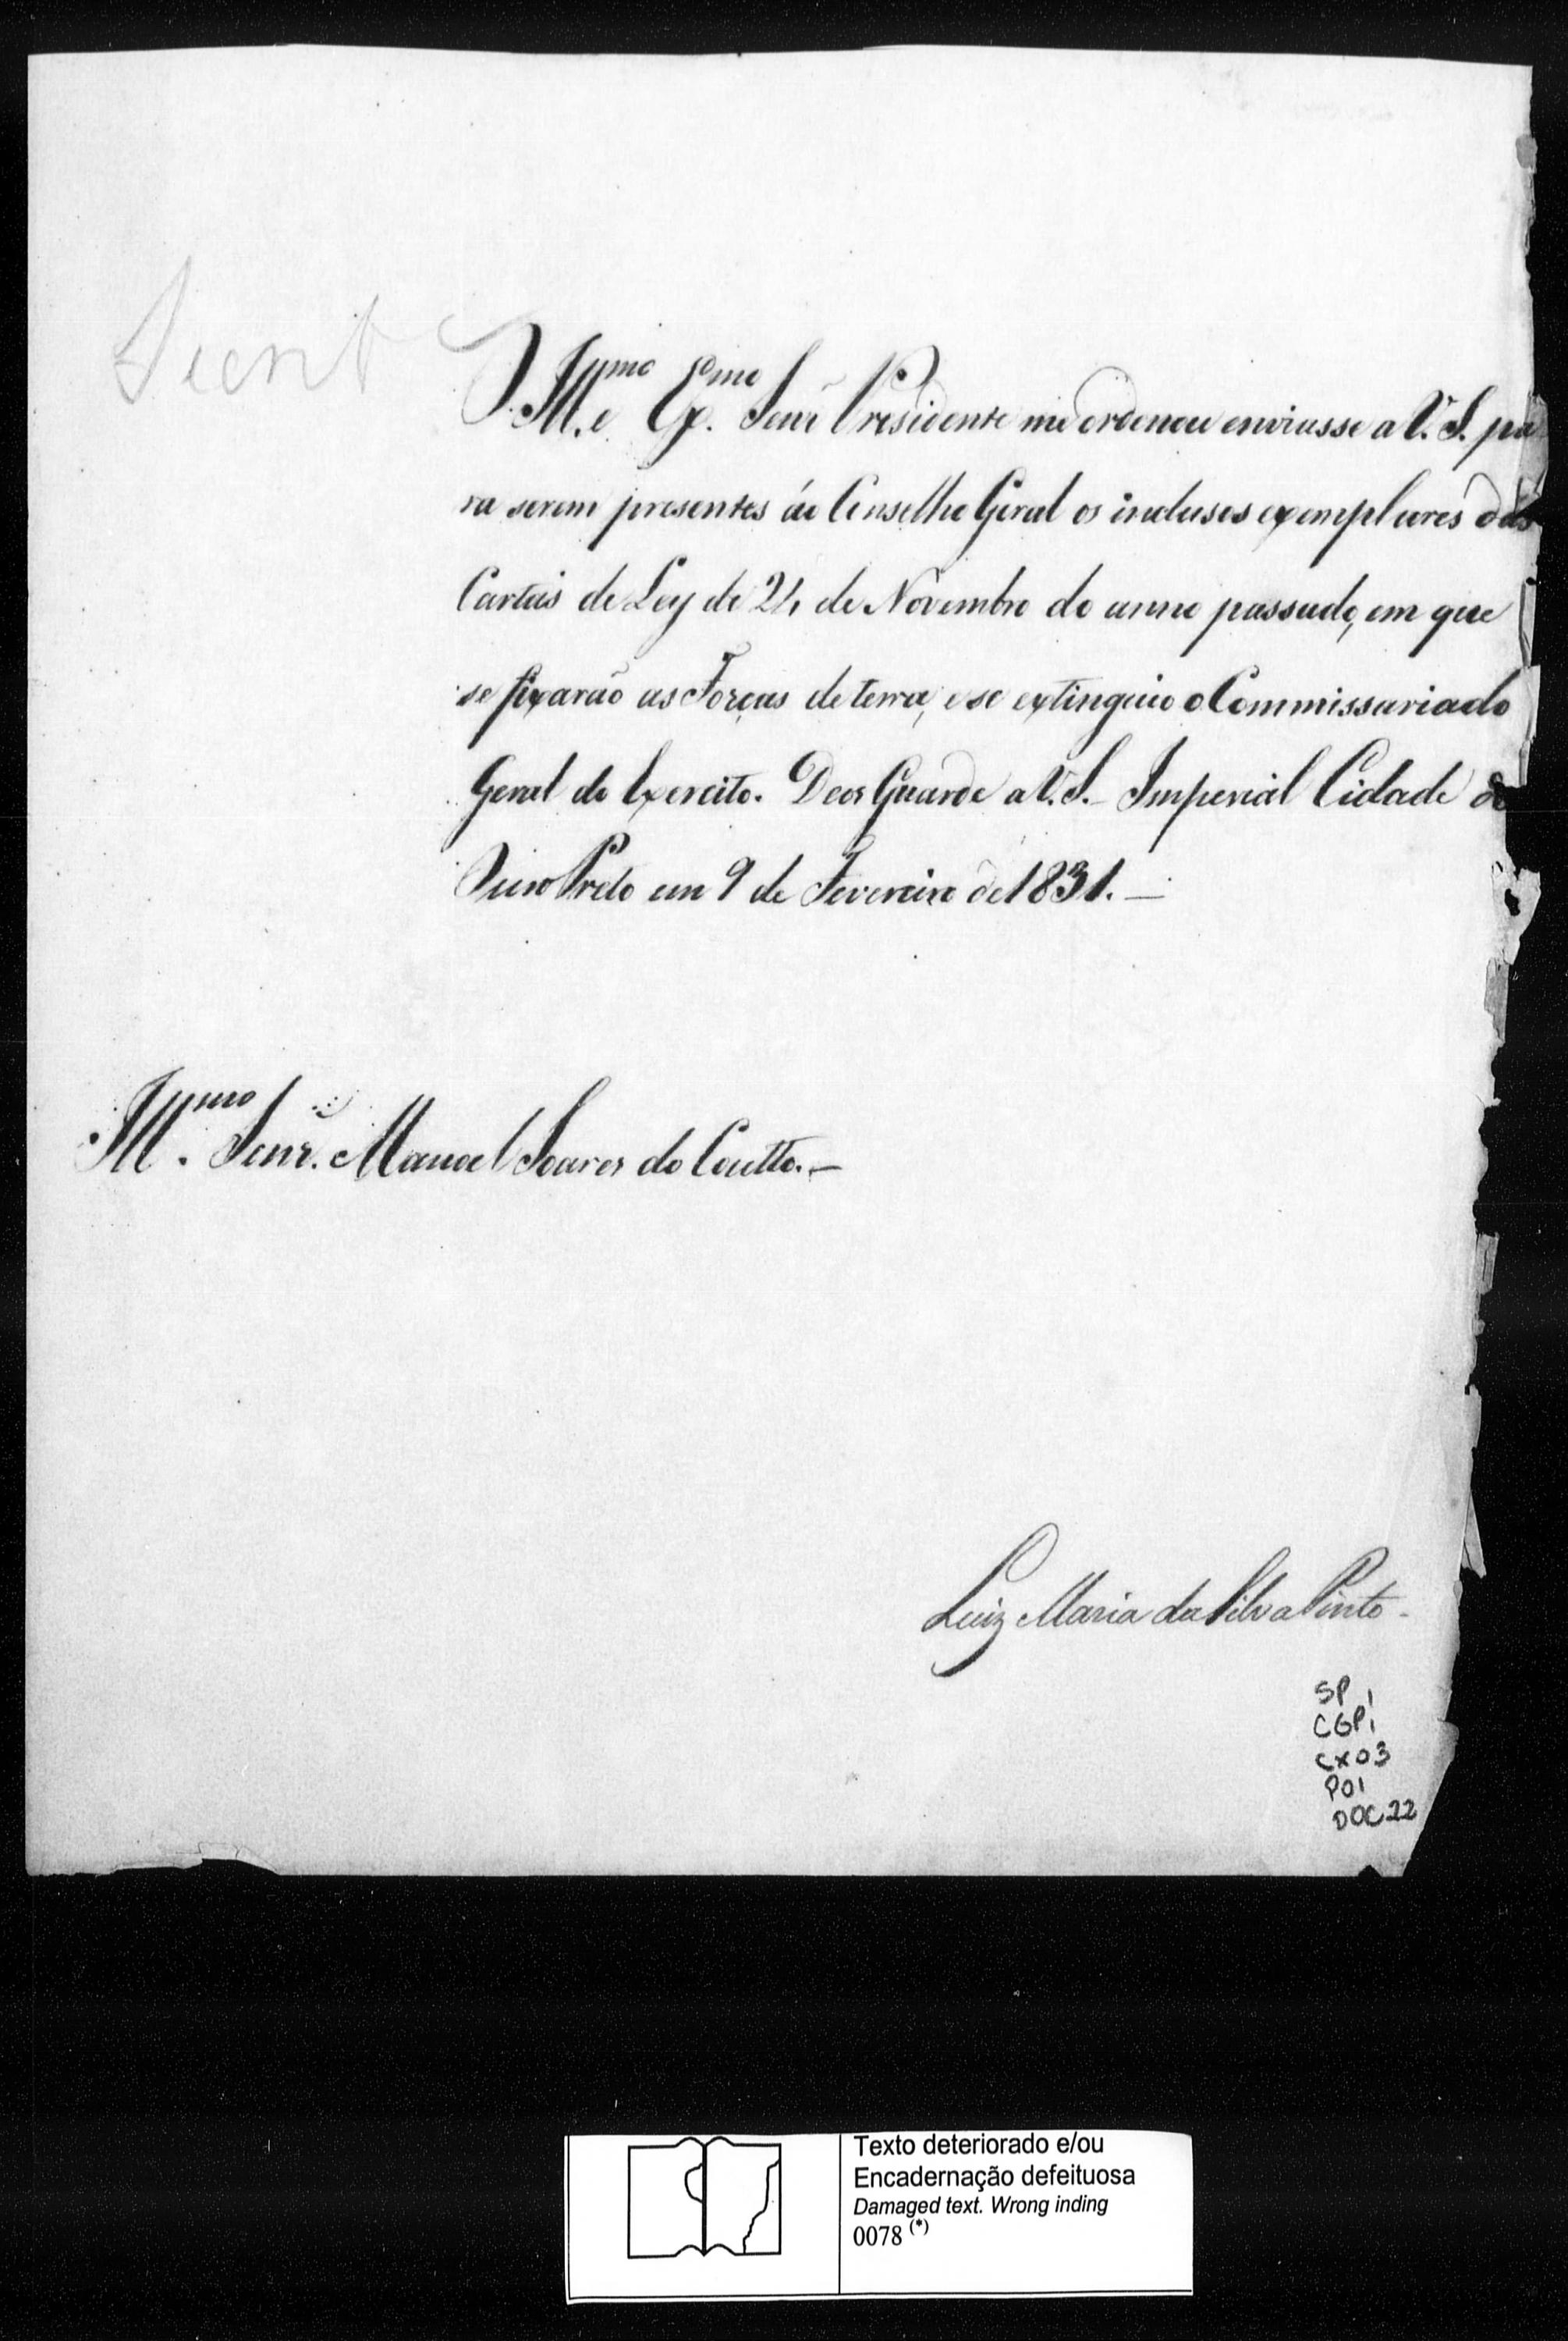 O Illmo. e Exmo. Senr. Presidente me ordenou enviasse a V. S. pa
ra serem presentes áo Conselho Geral os inclusos exemplares das
Cartas de Ley de 24 de Novembro do anno passado, em que
se fixarão as Forças de terra, e se extinguio o Commissariado
Geral do Exercito. Deos Guarde a V. S. Imperial Cidade do
Ouro Preto em 9 de Fevereiro de 1831. —
Illmo. Senr. Manoel Soares do Coutto. —
Luiz Maria da Silva Pinto.
SP
CGP1
CX03
P01
DOC22
Texto deteriorado e/ou
Encadernação defeituosa
Damaged text. Wrong inding
0078 (*)